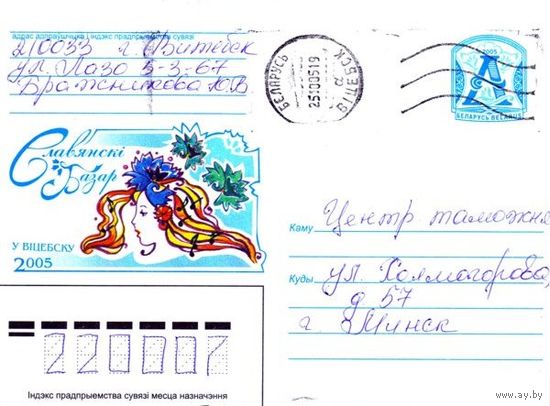 адрас адпраўшчыка і індэкс прадпрыемства сувязі
210033 г. Витебск
ул. Лазо 5-3-67
Бражникова Ю.В
БЕЛАРУСЬ
ВІЦЕБСК
2005
А
БЕЛАРУСЬ BELARUS
Славянскі
Базар
У ВІЦЕБСКУ
2005
Каму Центр таможне
Куды ул. Холмогорова,
д 57
г Минск
220007
Індэкс прадпрыемства сувязі месца назначэння
www.ay.by